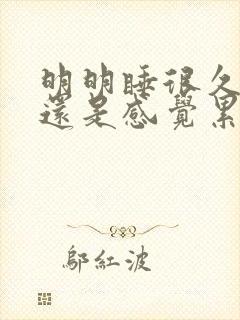 明明睡很久
還是感覺累
鄔紅波